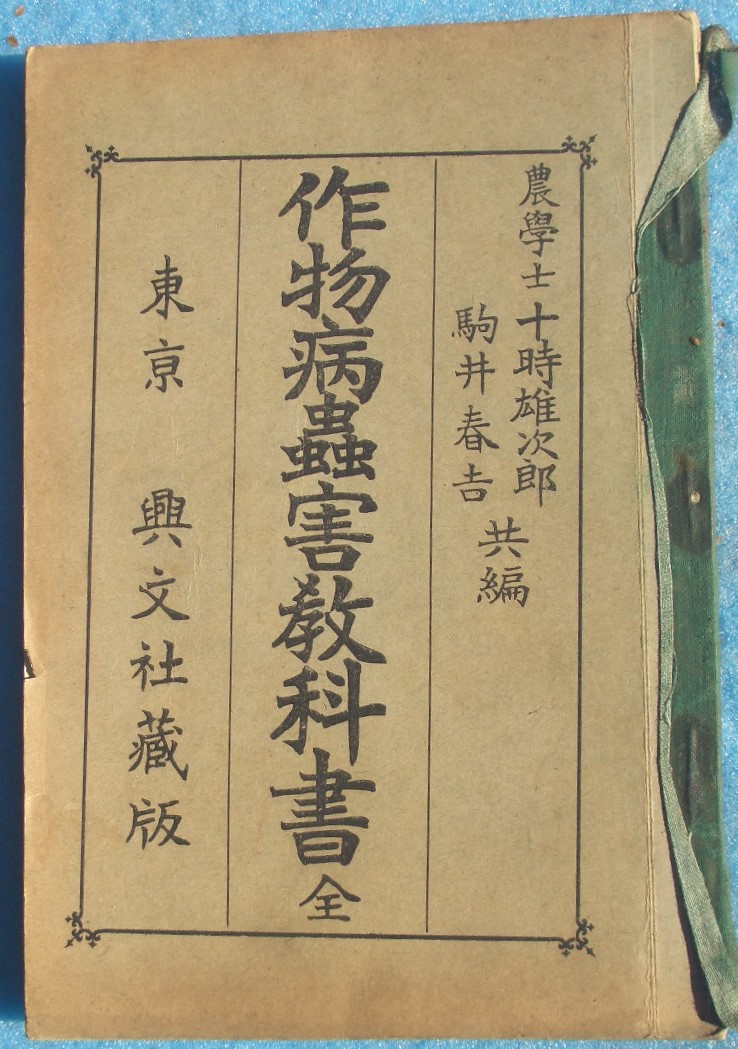 農學士 十時雄次郎
駒井春吉
共編
作物病蟲害教科書 全
東京 興文社藏版